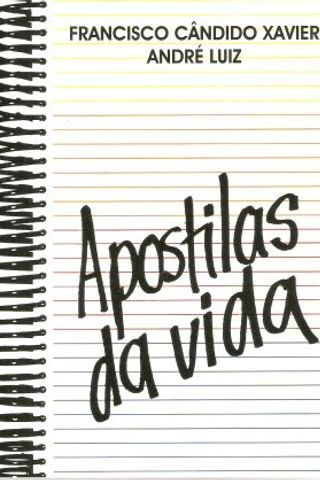 FRANCISCO CÂNDIDO XAVIER
ANDRÉ LUIZ
Apostilas
da vida